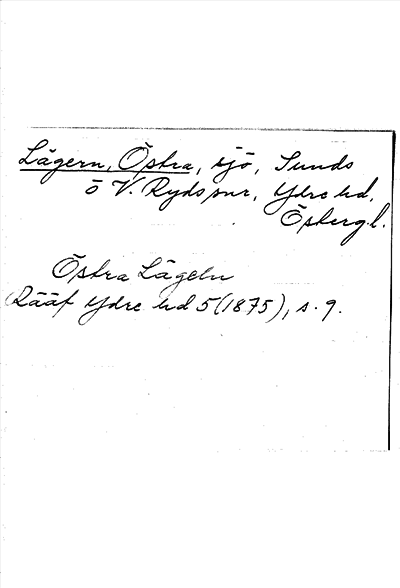 Lägern, Östra, sjö, Sunds
o V. Ryds snr, Ydre hd,
Östergl.
Östra Lägeln
Rääf Ydre hd 5 (1875), s. 9.